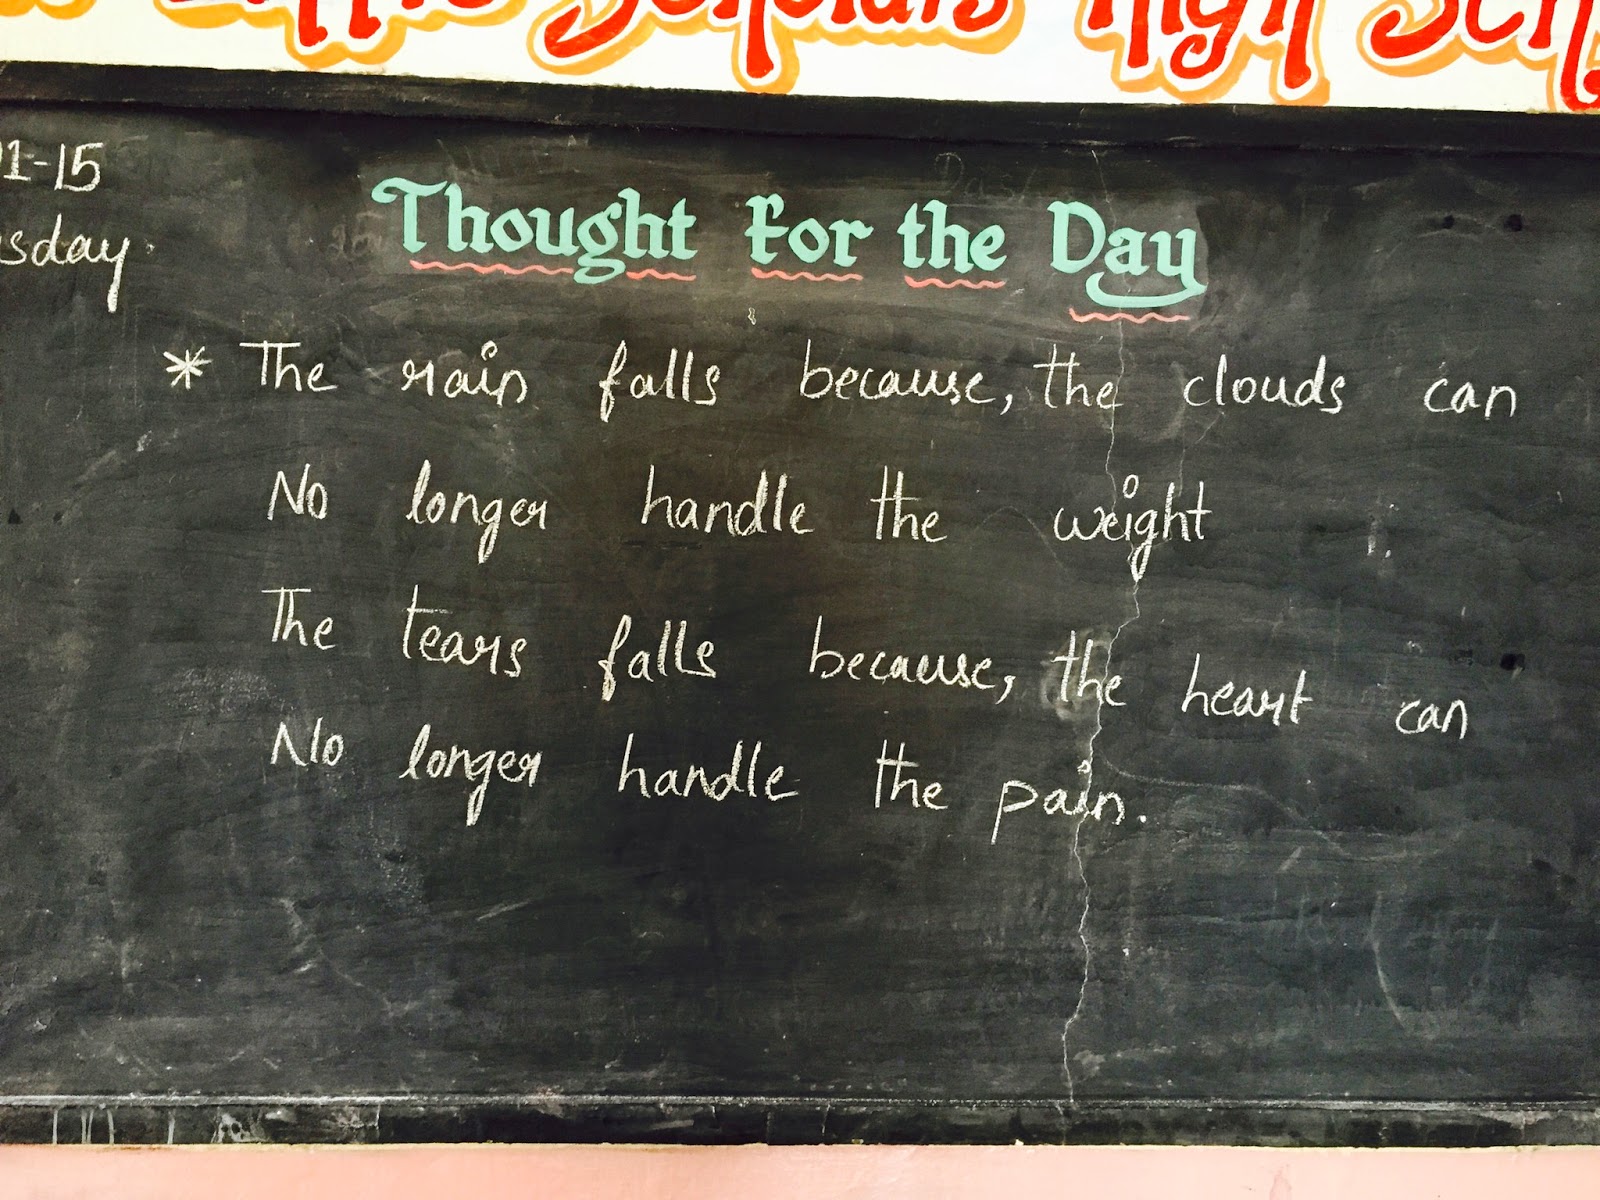 Little Scholars High Sch
01-15
sday
Thought For the Day
* The rain falls because, the clouds can
No longer handle the weight
The tears falls because, the heart can
No longer handle the pain.